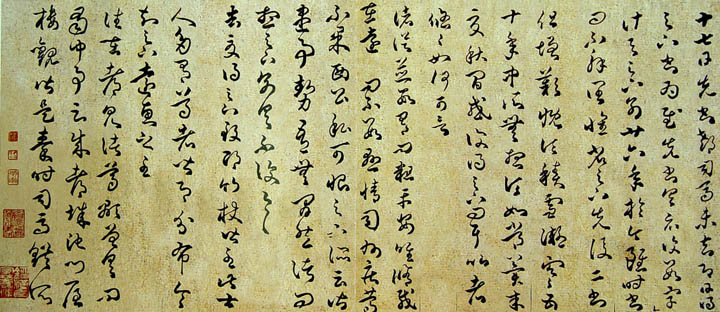 十七日先書郗司馬未去即日得
足下書為慰先書以具示復數字
計與足下別廿六年於今雖時書
問不解闊懷省足下先後二書
但增歎慨頃積雪凝寒五
十年中所無想頃如常冀來
夏秋間或復得足下問耳比者
悠悠如何可言
諸從並數有問粗平安唯脩載
在遠問不數懸情司州疾篤
不果西公私可恨足下所云皆
盡事勢吾無間然諸問
想足下別具不復一一
去夏得足下致邛竹杖皆至此士
人多有尊老者皆即分布令
知足下遠惠之至
往在都見諸葛顒曾具問
蜀中事云成都城池門屋
樓觀皆是秦時司馬錯所